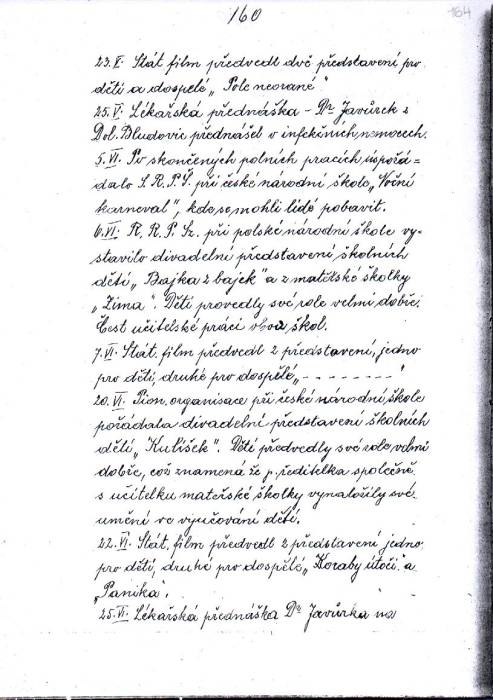 160
164
23.V. Stát film předvedl dvě představení pro
děti a dospělé „Pole neorané"
25.V. Lékařská přednáška - Dr Javůrek z
Dol. Bludovic přednášel o infekčních nemocech.
5.VI. Po skončených polních pracích uspořá=
dalo S.R.P.Š. při české národní škole „Noční
karneval", kde se mohli lidé pobavit.
6.VI. K.R.P.Sz. při polské národní škole vy=
stavilo divadelní představení školních
dětí „Bajka z bajek" a z mateřské školky
„Zima". Děti provedly své role velmi dobře.
Čest učitelské práci obou škol.
7.VI. Stát. film předvedl 2 představení, jedno
pro děti, druhé pro dospělé „- - - - - - - - "
20.VI. Pion. organisace při české národní škole
pořádala divadelní představení školních
dětí „Kulíšek". Děti předvedly své role velmi
dobře, což znamená že p. ředitelka společně
s učitelku mateřské školky vynaložily své
umění ve vyučování dětí.
22.VI. Stát. film předvedl 2 představení jedno
pro děti, druhé pro dospělé „Koraby útočí" a
„Panika".
25.VI. Lékařská přednáška Dr Javůrka na